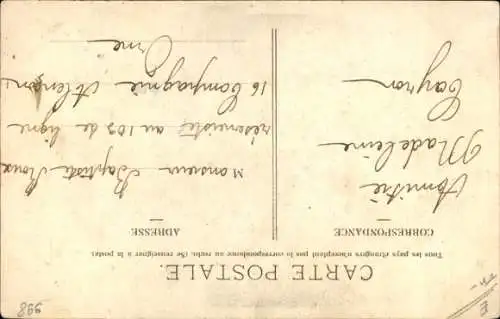 CARTE POSTALE.
Tous les pays étrangers n'acceptent pas la correspondance au recto. (Se renseigner à la poste).
CORRESPONDANCE
Amitié
Madeleine
Cayron
ADRESSE
Monsieur Baptiste Roux
réserviste au 103 de ligne
16 Compagnie Alençon
Orne
998